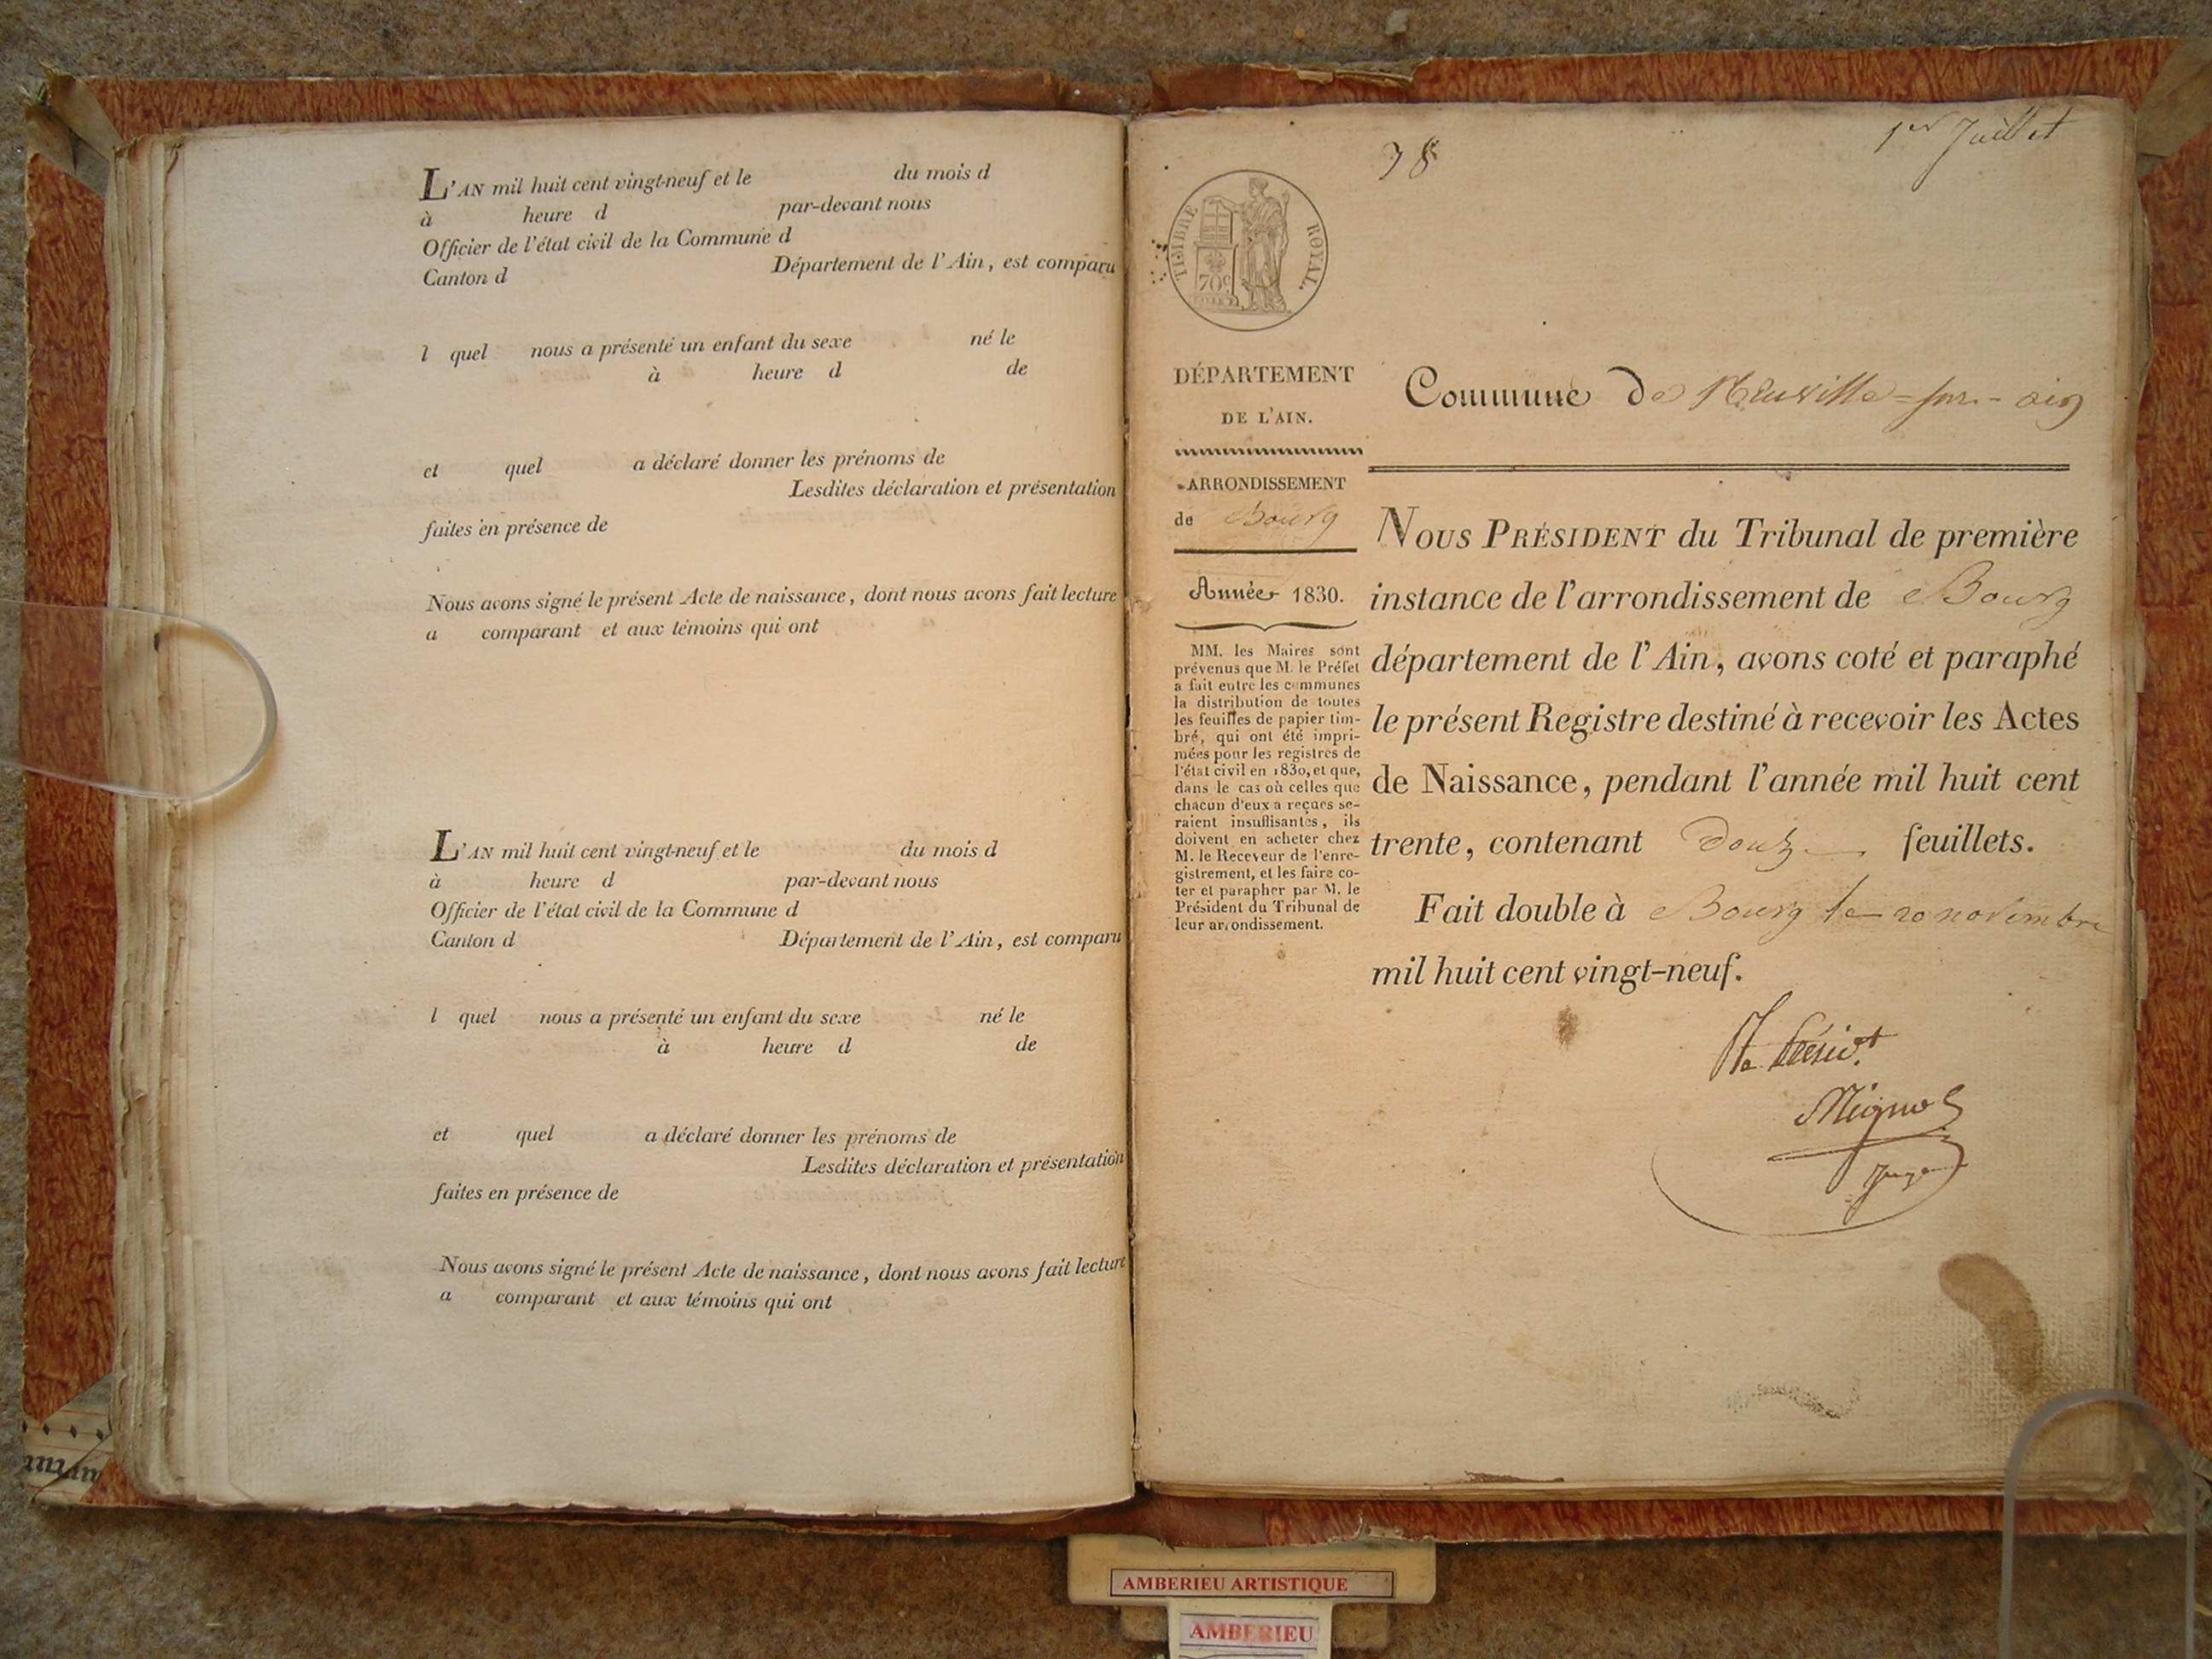 L'AN mil huit cent vingt-neuf et le du mois d
à heure d par-devant nous
Officier de l'état civil de la Commune d
Canton d Département de l'Ain, est comparu
l quel nous a présenté un enfant du sexe né le
à heure d de
et quel a déclaré donner les prénoms de
Lesdites déclaration et présentation
faites en présence de
Nous avons signé le présent Acte de naissance, dont nous avons fait lecture
a comparant et aux témoins qui ont
L'AN mil huit cent vingt-neuf et le du mois d
à heure d par-devant nous
Officier de l'état civil de la Commune d
Canton d Département de l'Ain, est comparu
l quel nous a présenté un enfant du sexe né le
à heure d de
et quel a déclaré donner les prénoms de
Lesdites déclaration et présentation
faites en présence de
Nous avons signé le présent Acte de naissance, dont nous avons fait lecture
a comparant et aux témoins qui ont
1er Juillet
38
TIMBRE ROYAL.
70c
DÉPARTEMENT
DE L'AIN.
ARRONDISSEMENT
de Bourg
Année 1830.
MM. les Maires sont
prévenus que M. le Préfet
a fait entre les communes
la distribution de toutes
les feuilles de papier tim-
bré, qui ont été impri-
mées pour les registres de
l'état civil en 1830, et que,
dans le cas où celles que
chacun d'eux a reçues se-
raient insuffisantes, ils
doivent en acheter chez
M. le Receveur de l'enre-
gistrement, et les faire co-
ter et parapher par M. le
Président du Tribunal de
leur arrondissement.
Commune de Neuville-sur-ain
NOUS PRÉSIDENT du Tribunal de première
instance de l'arrondissement de Bourg
département de l'Ain, avons coté et paraphé
le présent Registre destiné à recevoir les Actes
de Naissance, pendant l'année mil huit cent
trente, contenant douze feuillets.
Fait double à Bourg le 20 novembre
mil huit cent vingt-neuf.
Juge
AMBERIEU ARTISTIQUE
AMBERIEU